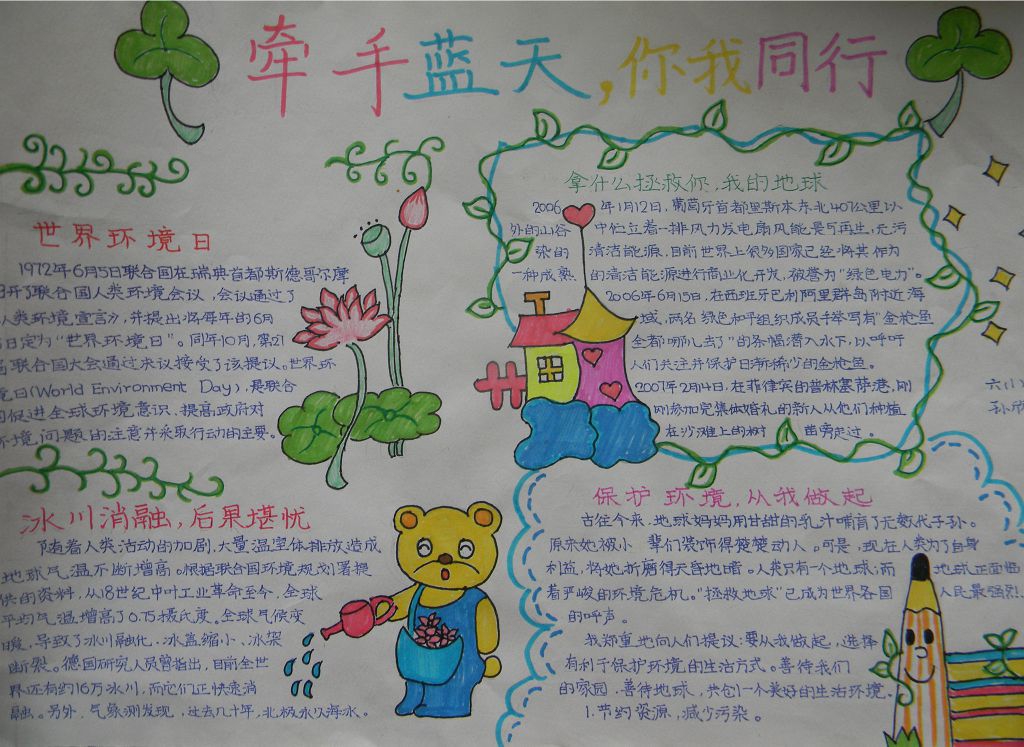 牵手蓝天,你我同行
世界环境日
1972年6月5日联合国在瑞典首都斯德哥尔摩
召开了联合国人类环境会议,会议通过了
《人类环境宣言》,并提出将每年的6月
5日定为"世界环境日"。同年10月,第27
届联合国大会通过决议接受了该提议。世界环
境日(World Environment Day),是联合
国促进全球环境意识、提高政府对
环境问题的注意并采取行动的主要。
冰川消融,后果堪忧
随着人类活动的加剧,大量温室体排放造成
地球气温不断增高。根据联合国环境规划署提
供的资料,从18世纪中叶工业革命至今,全球
平均气温增高了0.75摄氏度。全球气候变
暖,导致了冰川融化、冰盖缩小、冰架
断裂。德国研究人员曾指出,目前全世
界还有约16万冰川,而它们正快速消
融。另外,气象测发现,过去几十年,北极永久海冰。
拿什么拯救你,我的地球
2006年1月12日,葡萄牙首都里斯本东北40公里以
外的山谷中伫立着一排风力发电扇风能是可再生、无污
染的清洁能源,目前世界上很多国家已经将其作为
一种成熟的清洁能源进行商业化开发,被誉为"绿色电力"。
2006年6月15日,在西班牙巴利阿里群岛附近海
域,两名绿色和平组织成员手举写有"金枪鱼
全都哪儿去了"的条幅潜入水下,以呼吁
人们关注并保护日渐稀少的金枪鱼。
2007年2月14日,在菲律宾的普林塞萨港,刚
刚参加完集体婚礼的新人从他们种植
在沙滩上的树苗旁走过。
六(1
孙欣
保护环境,从我做起
古往今来,地球妈妈用甘甜的乳汁哺育了无数代子孙。
原来她被小辈们装饰得楚楚动人。可是,现在人类为了自身
利益,将她折磨得天昏地暗。人类只有一个地球;而地球正面临
着严峻的环境危机。"拯救地球"已成为世界各国人民最强烈
的呼声。
我郑重地向人们提议:要从我做起,选择
有利于保护环境的生活方式。善待我们
的家园,善待地球,共创一个美好的生活环境。
1.节约资源,减少污染。